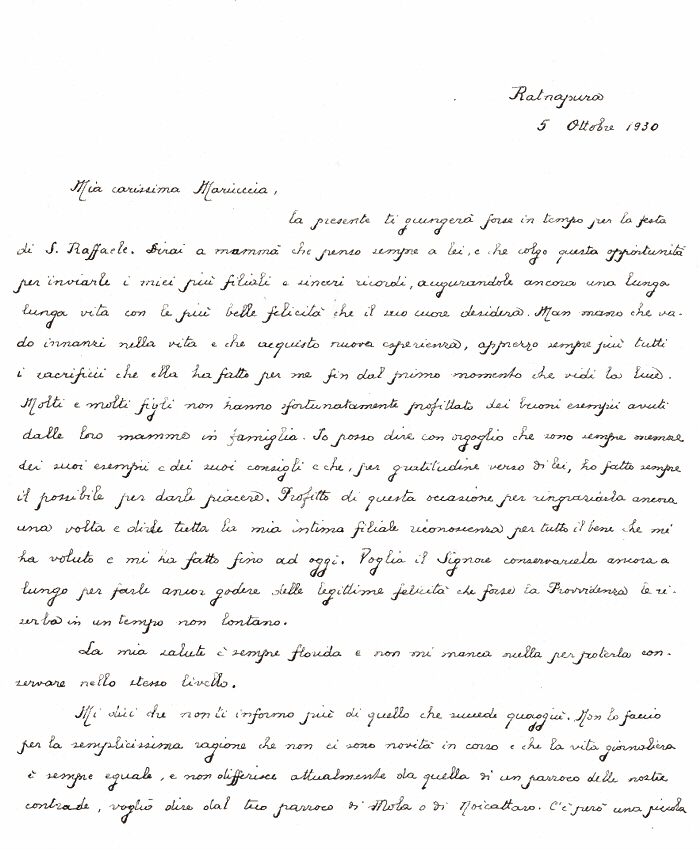 Ratnapura
5 Ottobre 1930
Mia carissima Mariuccia,
la presente ti giungerà forse in tempo per la festa
di S. Raffaele. Dirai a mammà che penso sempre a lei, e che colgo questa opportunità
per inviarle i miei più filiali e sinceri ricordi, augurandole ancora una lunga
lunga vita con le più belle felicità che il suo cuore desidera. Man mano che va-
do innanzi nella vita e che acquisto nuova esperienza, apprezzo sempre più tutti
i sacrifizii che ella ha fatto per me fin dal primo momento che vidi la luce.
Molti e molti figli non hanno sfortunatamente profittato dei buoni esempii avuti
dalle loro mamme in famiglia. Io posso dire con orgoglio che sono sempre memore
dei suoi esempii e dei suoi consigli e che, per gratitudine verso di lei, ho fatto sempre
il possibile per darle piacere. Profitto di questa occasione per ringraziarla ancora
una volta e dirle tutta la mia intima filiale riconoscenza per tutto il bene che mi
ha voluto e mi ha fatto fino ad oggi. Voglia il Signore conservarcela ancora a
lungo per farle ancor godere delle legittime felicità che forse la Provvidenza le ri-
serba in un tempo non lontano.
La mia salute è sempre florida e non mi manca nulla per poterla con-
servare nello stesso livello.
Mi dici che non ti informo più di quello che succede quaggiù. Non lo faccio
per la semplicissima ragione che non ci sono novità in corso e che la vita giornaliera
è sempre eguale, e non differisce attualmente da quella di un parroco delle nostre
contrade, voglio dire dal tuo parroco di Mola o di Noicattaro. C'è però una piccola